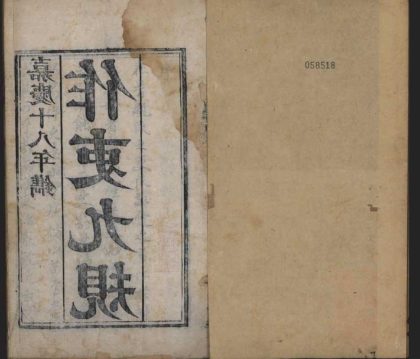 嘉慶十八年 鐫
作吏九規
058518